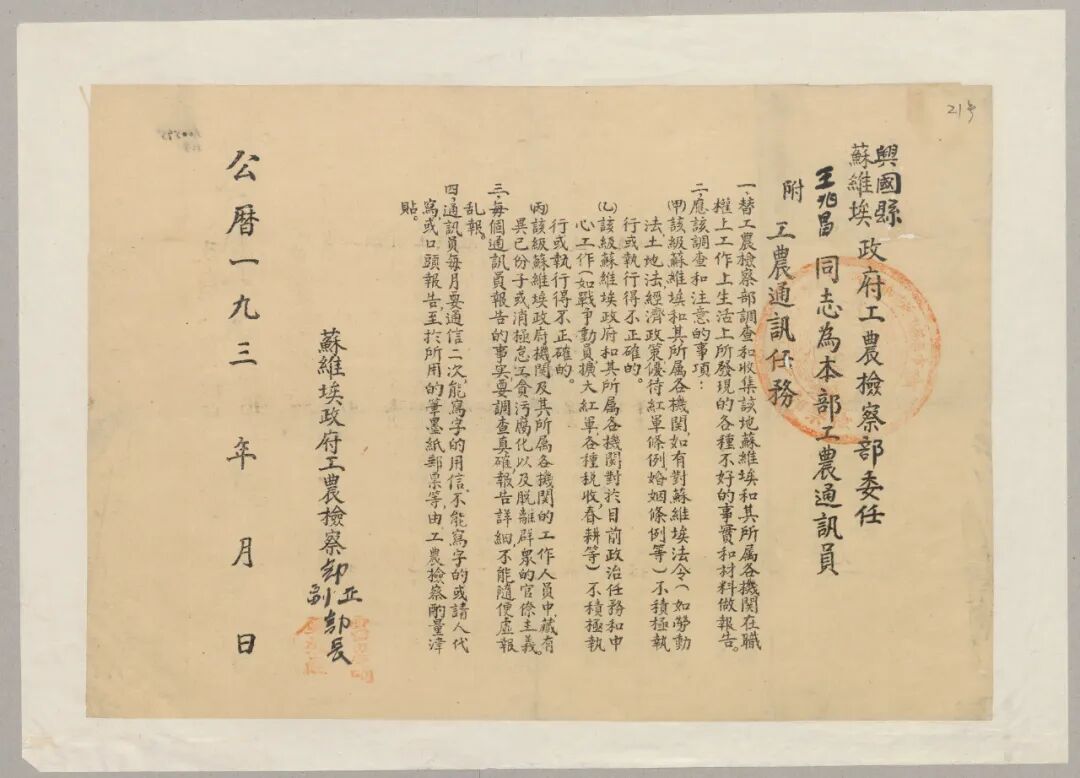 21号
興國縣
蘇維埃
政府工農檢察部委任
王兆昌同志為本部工農通訊員
附 工農通訊任務
一、替工農檢察部調查和收集該地蘇維埃和其所属各機関在職
權上工作上生活上所發現的各種不好的事實和材料做報告。
二、應該調查和注意的事項：
(甲)該級蘇維埃和其所属各機関，如有對蘇維埃法令(如勞動
法土地法經濟政策優待紅軍條例婚姻條例等)不積極執
行或執行得不正確的。
(乙)該級蘇維埃政府和其所属各機関對於目前政治任務和中
心工作(如戰爭動員擴大紅軍各種税收春耕等)不積極執
行或執行得不正確的。
(丙)該級蘇維埃政府機関及其所属各機関的工作人員中，藏有
異己份子或消極怠工貪污腐化以及脱離群衆的官僚主義。
三、每個通訊員報告的事实，要調查真確，報告詳細，不能隨便虚報
乱報。
四、通訊員每月要通信二次，能寫字的用信，不能寫字的或請人代
寫，或口頭報告，至於所用的筆墨紙郵票等，由工農檢察酌量津
貼。
蘇維埃政府工農檢察部
正
副
部長
公曆一九三 年 月 日